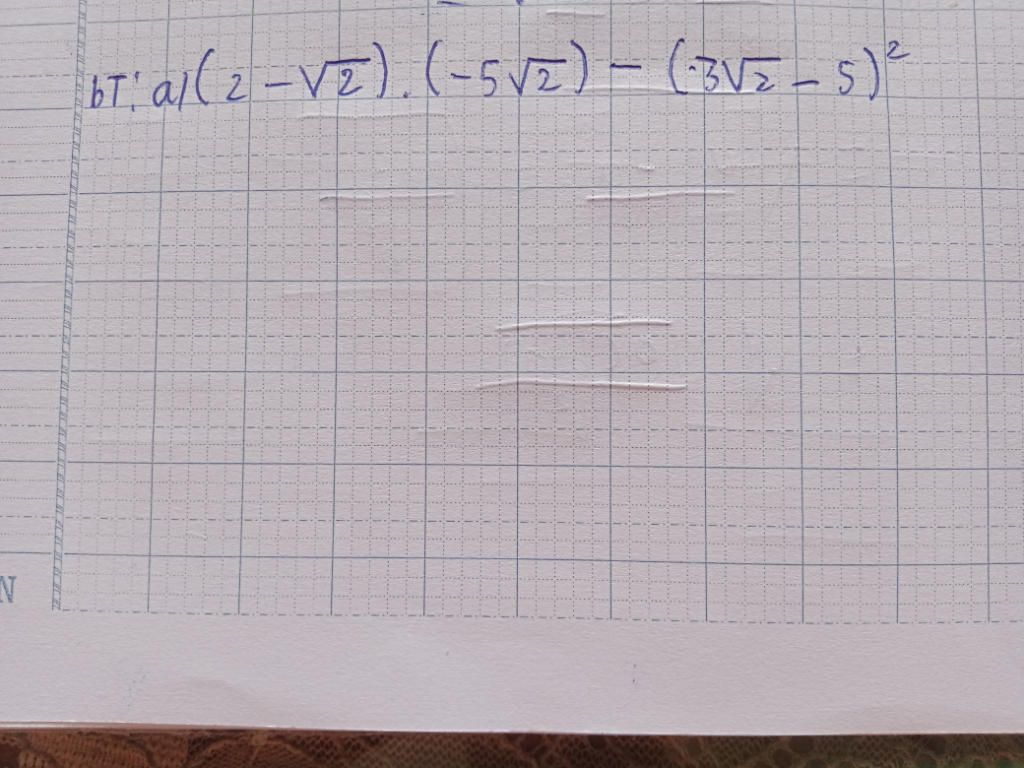 bT: a/(2 - √2).(-5√2) - (3√2 - 5)²
N